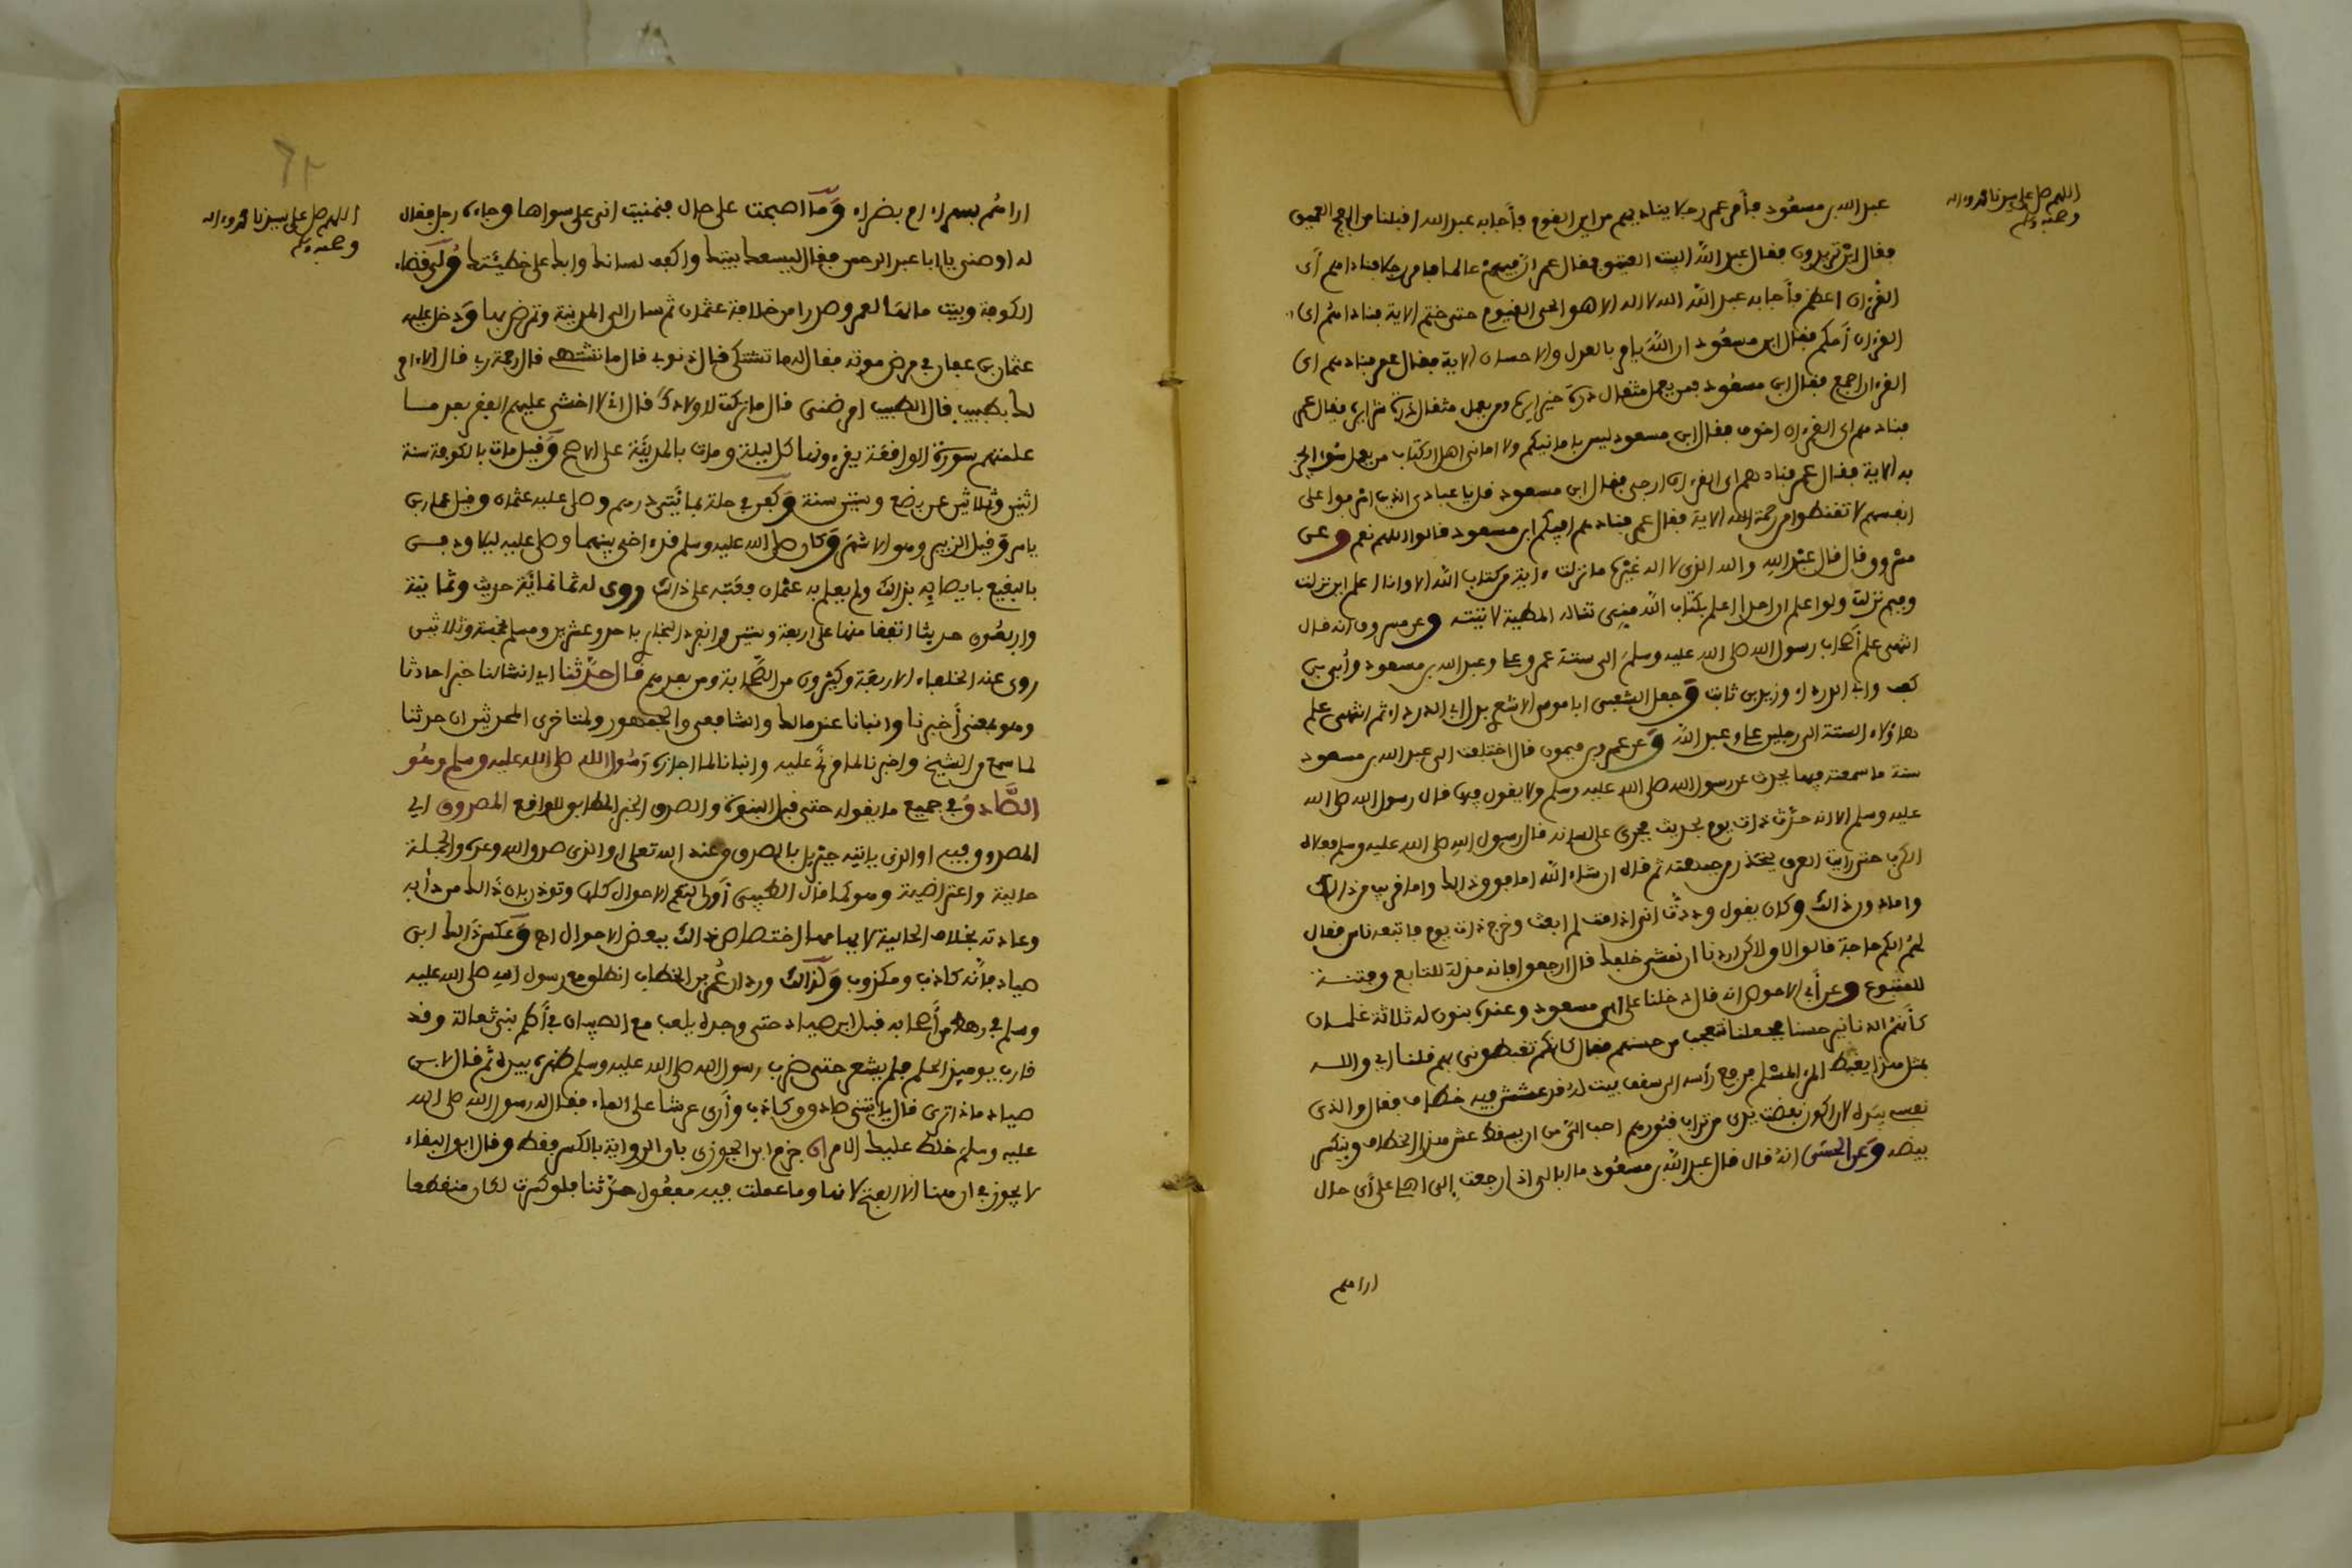 اللهم صل على سيدنا محمد وءاله
وصحبه وسلم
عبد الله بن مسعود فأمر عمر رجلا يناديهم من اين القوم فأجابه عبد الله اقبلنا من الفج العميق
فقال اين تريدون فقال عبد الله البيت العتيق فقال عمر ان فيهم عالما فأمر رجلا فناداهم أى
القرءان اعظم فأجابه عبد الله الله لا اله الا هو الحى القيوم حتى ختم الاية فناداهم اى
القرءان أحكم فقال ابن مسعود ان الله يامر بالعدل والاحسان الاية فقال عمر فنادهم اى
القرءان اجمع فقال ابن مسعود فمن يعمل مثقال ذرة خيرا يره ومن يعمل مثقال ذرة شرا يره فقال عمر
فنادهم اى القرءان اخوف فقال ابن مسعود ليس بامانيكم ولا امانى اهل الكتاب من يعمل سوءا يجز
به الاية فقال عمر فنادهم اى القرءان ارجى فقال ابن مسعود قل يا عبادى الذين اسرفوا على
انفسهم لا تقنطوا من رحمة الله الاية فقال عمر فنادهم افيكم ابن مسعود قالوا اللهم نعم وعن
مسروق قال قال عبد الله والله الذى لا اله غيره ما نزلت ءاية من كتاب الله الا وانا اعلم اين نزلت
وفيم نزلت ولو اعلم ان احدا اعلم بكتاب الله منى تناله المطية لاتيته وعن مسروق انه قال
انتهى علم أصحاب رسول الله صلى الله عليه وسلم الى ستة عمر وعلى وعبد الله بن مسعود وأبى بن
كعب وابى الدرداء وزيد بن ثابت وجعل الشعبى ابا موسى الاشعرى بدل ابى الدرداء ثم انتهى علم
هاؤلاء الستة الى رجلين على وعبد الله وعن عمرو بن ميمون قال اختلفت الى عبد الله بن مسعود
سنة ما سمعته فيها يحدث عن رسول الله صلى الله عليه وسلم ولا يقول فيها قال رسول الله صلى الله
عليه وسلم الا انه حدث ذات يوم بحديث فجرى على لسانه قال رسول الله صلى الله عليه وسلم فعلاه
الكرب حتى رايت العرق يتحدر من جبهته ثم قال ان شاء الله اما فوق ذالك واما قريب من ذالك
واما دون ذالك وكان يقول وددت انى اذا مت لم ابعث وخرج ذات يوم فاتبعه ناس فقال
لهم الكم حاجة قالوا لا ولاكن اردنا ان نمشى خلفك قال ارجعوا فانه مذلة للتابع وفتنة
للمتبوع وعن أبى الاحوص انه قال دخلنا على ابن مسعود وعنده بنون له ثلاثة غلمان
كأنهم الدنانير حسنا فجعلنا نتعجب من حسنهم فقال كانكم تغبطونى بهم قلنا اى والله
بمثل هذا يغبط المرء المسلم فرفع رأسه الى سقف بيت له قد عشش فيه خطاف فقال والذى
نفسه بيده لان اكون نفضت يدى من تراب قبورهم احب الى من ان يسقط عش هذا الخطاف وينكسر
بيضه وعن الحسن انه قال قال عبد الله بن مسعود ما ابالى اذا رجعت الى اهلى على أى حال
اراهم
اللهم صل على سيدنا محمد وءاله
وصحبه وسلم
اراهم بسراء ام بضراء وما اصبحت على حال فتمنيت انى على سواها وجاءه رجل فقال
له اوصنى يا ابا عبد الرحمن فقال ليسعك بيتك واكفف لسانك وابك على خطيئتك ولى قضاء
الكوفة وبيت مالها لعمر وصدرا من خلافة عثمان ثم سار الى المدينة وتمرض بها ودخل عليه
عثمان بن عفان فى مرض موته فقال له ما تشتكى قال ذنوبى قال ما تشتهى قال رحمة ربى قال الا ءامر
لك بطبيب قال الطبيب امرضنى قال ما تركت لاولادك قال انى لا اخشى عليهم الفقر بعد ما
علمتهم سورة الواقعة يقرءونها كل ليلة ومات بالمدينة على الاصح وقيل مات بالكوفة سنة
اثنين وثلاثين عن بضع وستين سنة وكفن فى حلة بمائتى درهم وصلى عليه عثمان وقيل عمار بن
ياسر وقيل الزبير وهو الاشهر وكان صلى الله عليه وسلم قد ءاخى بينهما وصلى عليه ليلا ودفن
بالبقيع بايصايه بذالك ولم يعلم به عثمان فعتبه على ذالك روى له ثمانمائة حديث وثمانية
واربعون حديثا اتفقا منها على اربعة وستين وانفرد البخارى باحد وعشرين ومسلم بخمسة وثلاثين
روى عنه الخلفاء الاربعة وكثيرون من الصحابة ومن بعدهم قال حدثنا اى انشا لنا خبرا حادثا
وهو بمعنى أخبرنا وانبانا عند مالك والشافعى والجمهور ولمتاخرى المحدثين ان حدثنا
لما سمع من الشيخ واخبرنا لما قرئ عليه وانبانا لما اجازه رسول الله صلى الله عليه وسلم وهو
الصادق فى جميع ما يقوله حتى قبل النبوة والصدق الخبر المطابق للواقع المصدوق اى
المصدوق فيه او الذى ياتيه جبريل بالصدق من عند الله تعلى او الذى صدق الله وعده والجملة
حالية واعتراضية وهو كما قال الطيبى أولى لتعم الاحوال كلها وتوذن بان ذالك من دأبه
وعادته بخلاف الحالية لايهامها اختصاص ذالك ببعض الاحوال اه وعكس ذالك ابن
صياد فأنه كاذب ومكذوب وكذالك ورد ان عمر بن الخطاب انطلق مع رسول الله صلى الله عليه
وسلم فى رهط من أصحابه قبل ابن صياد حتى وجده يلعب مع الصبيان فى أطم بنى ثعالة وقد
قارب يوميذ الحلم فلم يشعر حتى ضرب رسول الله صلى الله عليه وسلم ظهره بيده ثم قال لابن
صياد ماذا ترى قال ياتينى صادق وكاذب وأرى عرشا على الماء فقال له رسول الله صلى الله
عليه وسلم خلط عليك الامر ان جزم ابن الجوزى بان الرواية بالكسر فقط وقال ابو البقاء
لا يجوز فى ان هنا الا الفتح لانها وما عملت فيه مفعول حدثنا فلو كسرت لكان منقطعا